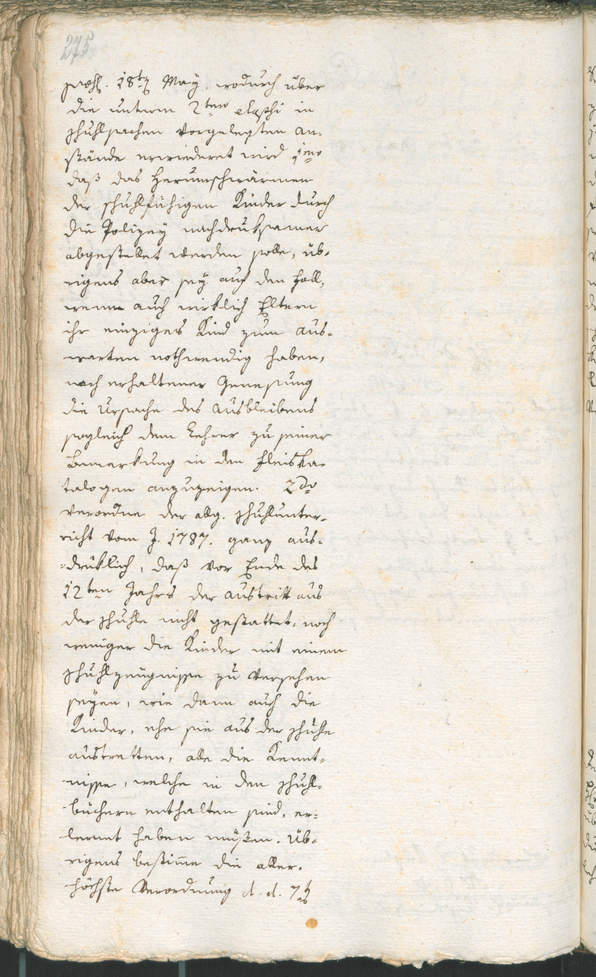 275
praes. 18ten May. wodurch über
die unterm 2ten elapsi in
Schuhlsachen vorgelegten An-
stände erwiederet wird 1mo
daß das herumschwärmen
der schuhlfähigen Kinder durch
die Polizey nachdruksamer
abgestellet werden solle, üb-
rigens aber sey auf den Fall,
wenn auch wirklich Eltern
ihr einziges Kind zum aus-
warten nothwendig haben,
nach erhaltener Genesung
die Ursache des Ausbleibens
sogleich dem Lehrer zu seiner
Bemerkung in den Fleiska-
talogen anzuzeigen. 2do
verordne der allg. Schuhlunter-
richt vom J. 1787. ganz aus-
drüklich, daß vor Ende des
12ten Jahrs der Austritt aus
der Schuhle nicht gestattet, noch
weniger die Kinder mit einem
Schuhlzeugnisse zu versehen
seyen, wie dann auch die
Kinder, ehe sie aus der Schuhle
austretten, alle die Kennt-
nisse, welche in den Schuhl-
büchern enthalten sind, er-
lernt haben müßen. Üb-
rigens bestimme die aller-
höchste Verordnung d. d. 7t